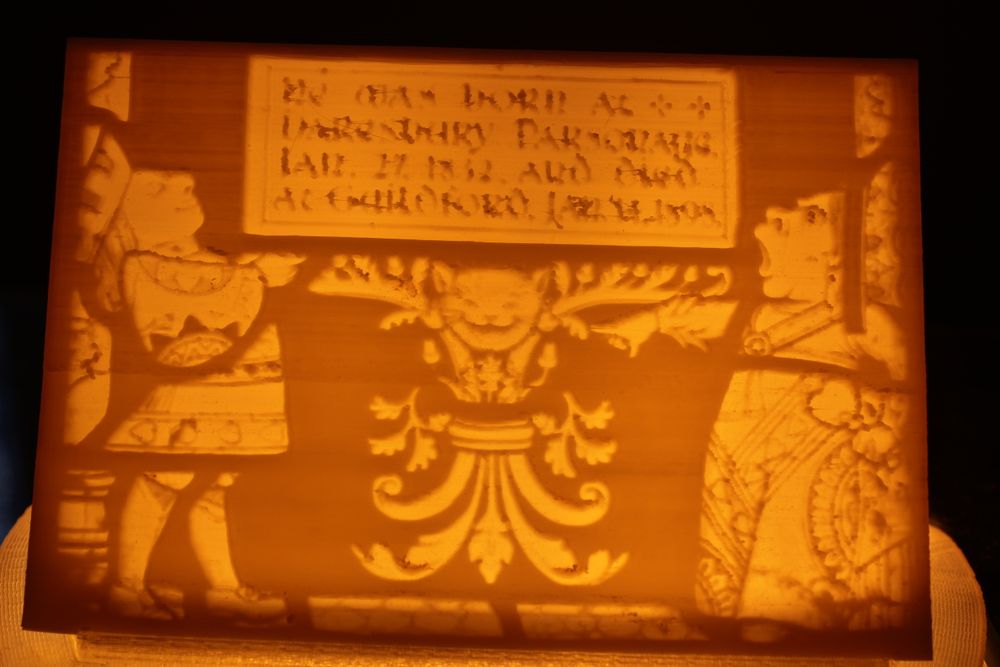 was born at
Daresbury Parsonage
Jan. 27. 1832 and died
at Guildford, Jan. 14. 1898